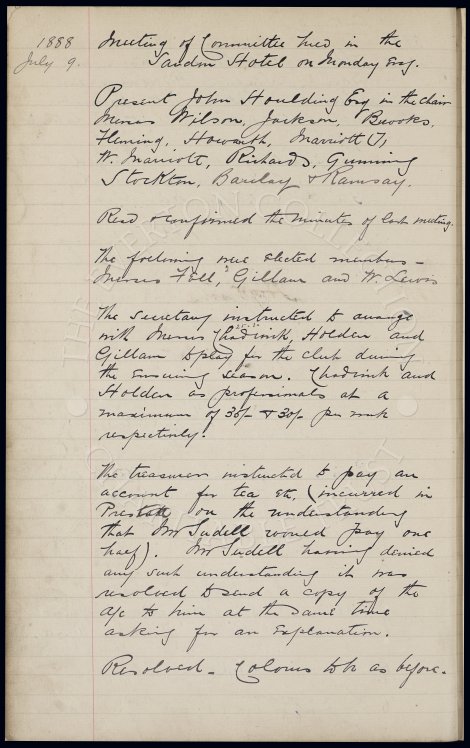 1888
July 9.
Meeting of Committee held in the
Sandon Hotel on Monday Evg.
Present John Houlding Esq in the Chair
Messrs Wilson, Jackson, Brooks,
Fleming, Howarth, Marriott (J),
W. Marriott, Richards, Gunning
Stockton, Barclay & Ramsay.
Read & confirmed the minutes of last meeting.
The following were elected members -
Messrs Fall, Gillam and W. Lewis
The secretary instructed to arrange
with Messrs Chadwick, Holden and
Gillam to play for the club during
the ensuing season. Chadwick and
Holden as professionals at a
maximum of 35/- & 30/- per week
respectively.
The treasurer instructed to pay an
account for tea etc, (incurred in
Preston on the understanding
that Mr Sudell would pay one
half). Mr Sudell having denied
any such understanding it was
resolved to send a copy of the
a/c to him at the same time
asking for an explanation.
Resolved - Colours to be as before.
THE EVERTON COLLECTION